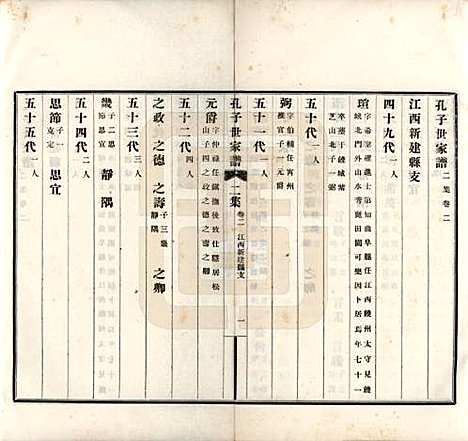 孔子世家譜 二集 卷二
江西新建縣支
四十九代 一人
瑄 字希堂擢進士第知曲阜縣任江西饒州太守見饒
城北門外山水秀麗田園可樂因卜居焉年七十一
卒葬于饒城紫
芝山北子一弼
五十代 一人
弼 字伯輔任宵州
推官子一元爵
五十一代 一人
孔子世家譜 二集 卷二 江西新建縣支 一
元爵 字仲祿任鎮撫後致仕隱居松
山子四之政之德之壽之卿
五十二代 四人
之政 之德 之壽 子三畿
靜隅 之卿
五十三代 三人
畿 子二思
節思宜 靜 隅
五十四代 二人
思節 子一
克定 思宜
五十五代 一人